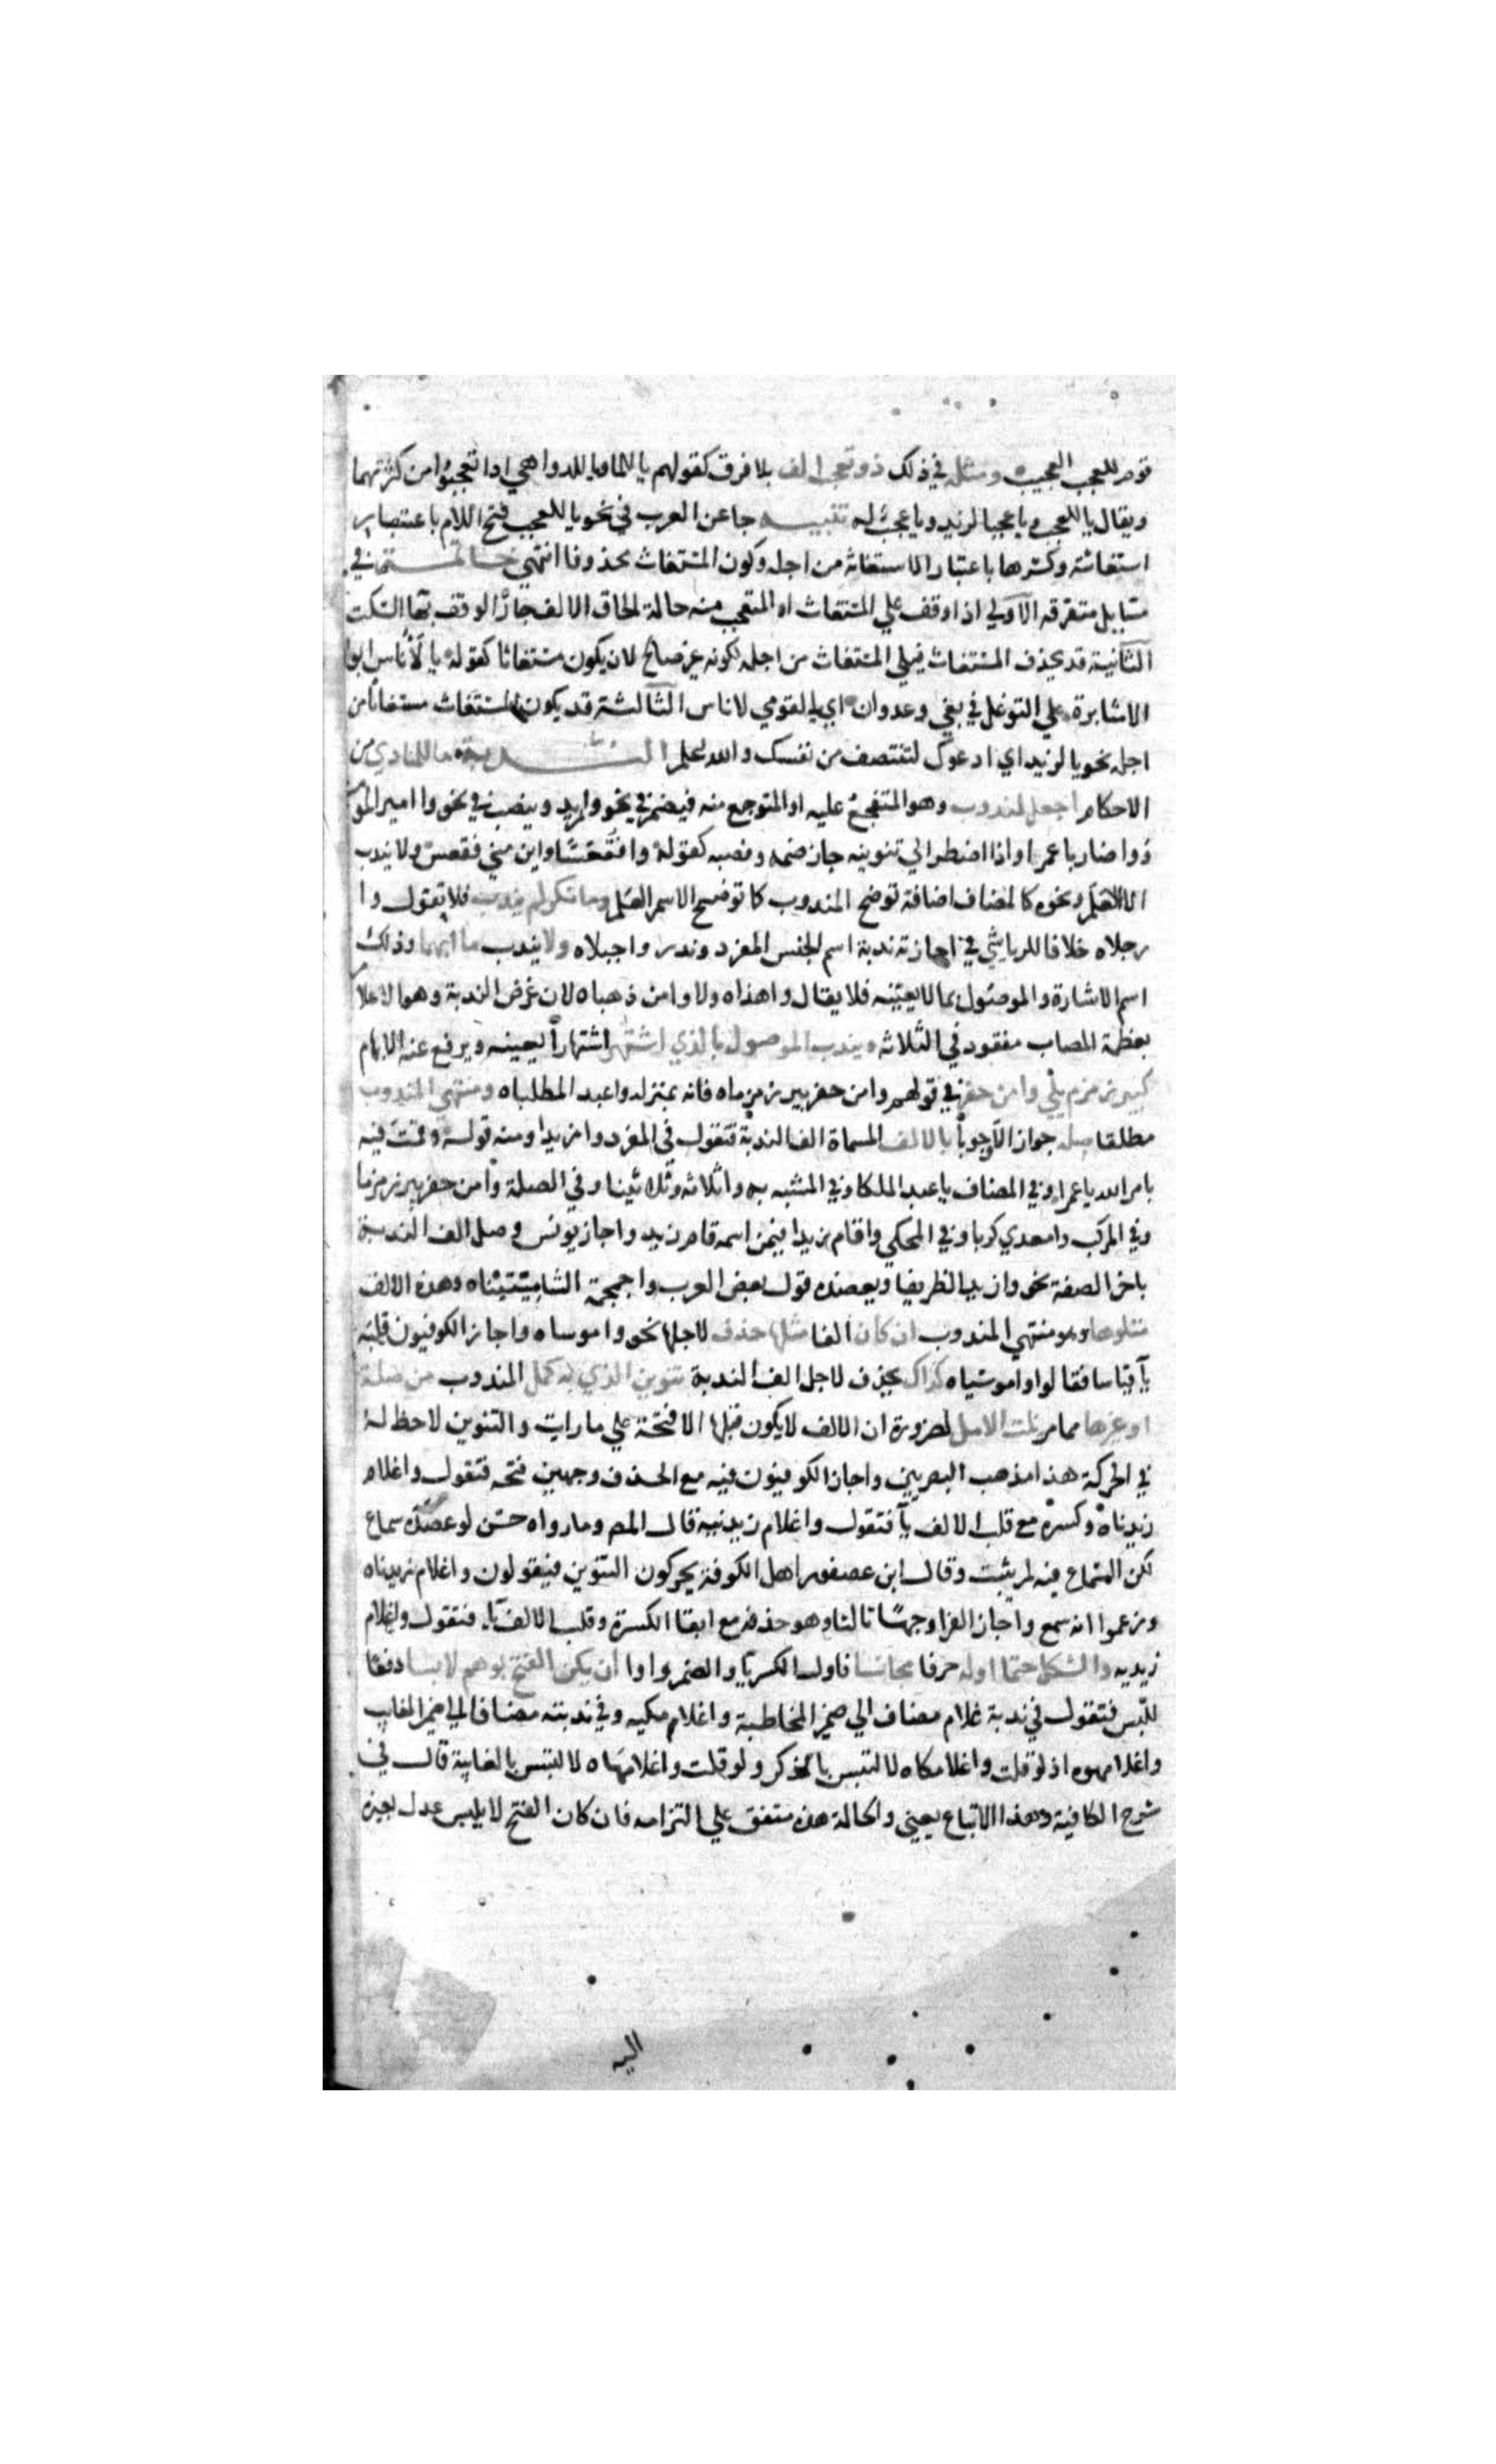 قوم للعجب العجيب ومثله في ذلك ذو تعجب الف بلا فرق كقولهم يا للما ويا للدواهي اذا تعجبوا من كثرتهما
ويقال يا للعجب ويا عجبا لزيد ويا عجب له تنبيه جا عن العرب في نحو يا للعجب فتح اللام باعتبار
استغاثته وكسرها باعتبار الاستغاثة من اجله وكون المستغاث محذوفا انتهى خاتمة في
مسايل متفرقه الاولي اذا وقف علي المستغاث او المتعجب منه حالة لحاق الالف جاز الوقف بها السكت
الثانية قد يحذف المستغاث فيلي المستغاث من اجله لكونه غير صالح لان يكون مستغاثا كقوله يا لأناس ابوا
الا مثابرة علي التوغل في بغي وعدوان اي يا لقومي لاناس الثالثة قد يكون المستغاث مستغاثا من
اجله نحو يا لزيد اي ادعوك لتنتصف من نفسك والله اعلم الندبة ما للمنادي من
الاحكام اجعل لمندوب وهو المتفجع عليه او المتوجع منه فيضم في نحو وازيد وينصب في نحو وا امير المو
وا ضاربا عمرا واذا اضطر الي تنوينه جاز ضمه ونصبه كقوله وا فقعسا واين مني فقعس ولا يندب
الا العلم ونحوه كالمضاف اضافة توضح المندوب كما توضح الاسم العلم وما نكر لم يندب فلا تقول وا
رجلاه خلافا للرياشي في اجازته ندبة اسم الجنس المفرد وندر واجبلاه ولا يندب ما ابهما وذلك
اسم الاشارة والموصول بما لا يعينه فلا يقال واهذاه ولا وامن ذهباه لان غرض الندبة وهو الاعلام
بعظمة المصاب مفقود في الثلاثه ويندب الموصول بالذي اشتهر اشتهارا يعينه ويرفع عنه الابهام
كبير زمزم يلي وامن حفر في قولهم وامن حفر بير زمزماه فانه بمنزلة واعبد المطلباه ومنتهي المندوب
مطلقا صله جوازا لا وجوبا بالالف المسماة الف الندبة فتقول في المفرد وا زيدا ومنه قوله وقمت فيه
بامر الله يا عمرا وفي المضاف يا عبد الملكا وفي المشبه به واثلاثة وثلاثينا وفي الصلة وامن حفر بير زمزما
وفي المركب وامعدي كربا وفي المحكي واقام زيدا فيمن اسمه قام زيد واجاز يونس وصل الف الندبة
باخر الصفة نحو وازيد الظريفا ويعضده قول بعض العرب واجمجمتي الشاميتيناه وهذه الالف
متلوها وهو منتهي المندوب ان كان الفا مثلها حذف لاجلها نحو واموساه واجاز الكوفيون قلبه
يآ قياسا فقالوا واموسياه كذاك يحذف لاجل الف الندبة تنوين الذي به كمل المندوب من صلة
او غيرها مما مر نلت الامل لضرورة ان الالف لا يكون قبلها الا فتحة علي ما رايت والتنوين لا حظ له
في الحركة هذا مذهب البصريين واجاز الكوفيون فيه مع الحذف وجهين فتحه فتقول واغلام
زيدناه وكسره مع قلب الالف يآ فتقول واغلام زيدنيه قال المص وما رواه حسن لو عضده سماع
لكن السماع فيه لم يثبت وقال ابن عصفور اهل الكوفة يحركون التنوين فيقولون واغلام زيدناه
وزعموا انه سمع واجاز الفرا وجها ثالثا وهو حذفه مع ابقا الكسرة وقلب الالف يآ فتقول واغلام
زيديه والشكل حتما اوله حرفا مجانسا فاول الكسر يا والضم واوا ان يكن الفتح بوهم لابسا دفعا
للبس فتقول في ندبة غلام مضاف الي ضمير المخاطبة واغلامكيه وفي ندبته مضافا الي ضمير الغايب
واغلامهوه اذ لو قلت واغلامكاه لالتبس بالمذكر ولو قلت واغلامهاه لالتبس بالغايبة قال في
شرح الكافية وهذا الاتباع يعني والحالة هذه متفق علي التزامه فان كان الفتح لا يلبس عدل بغيره
اليه